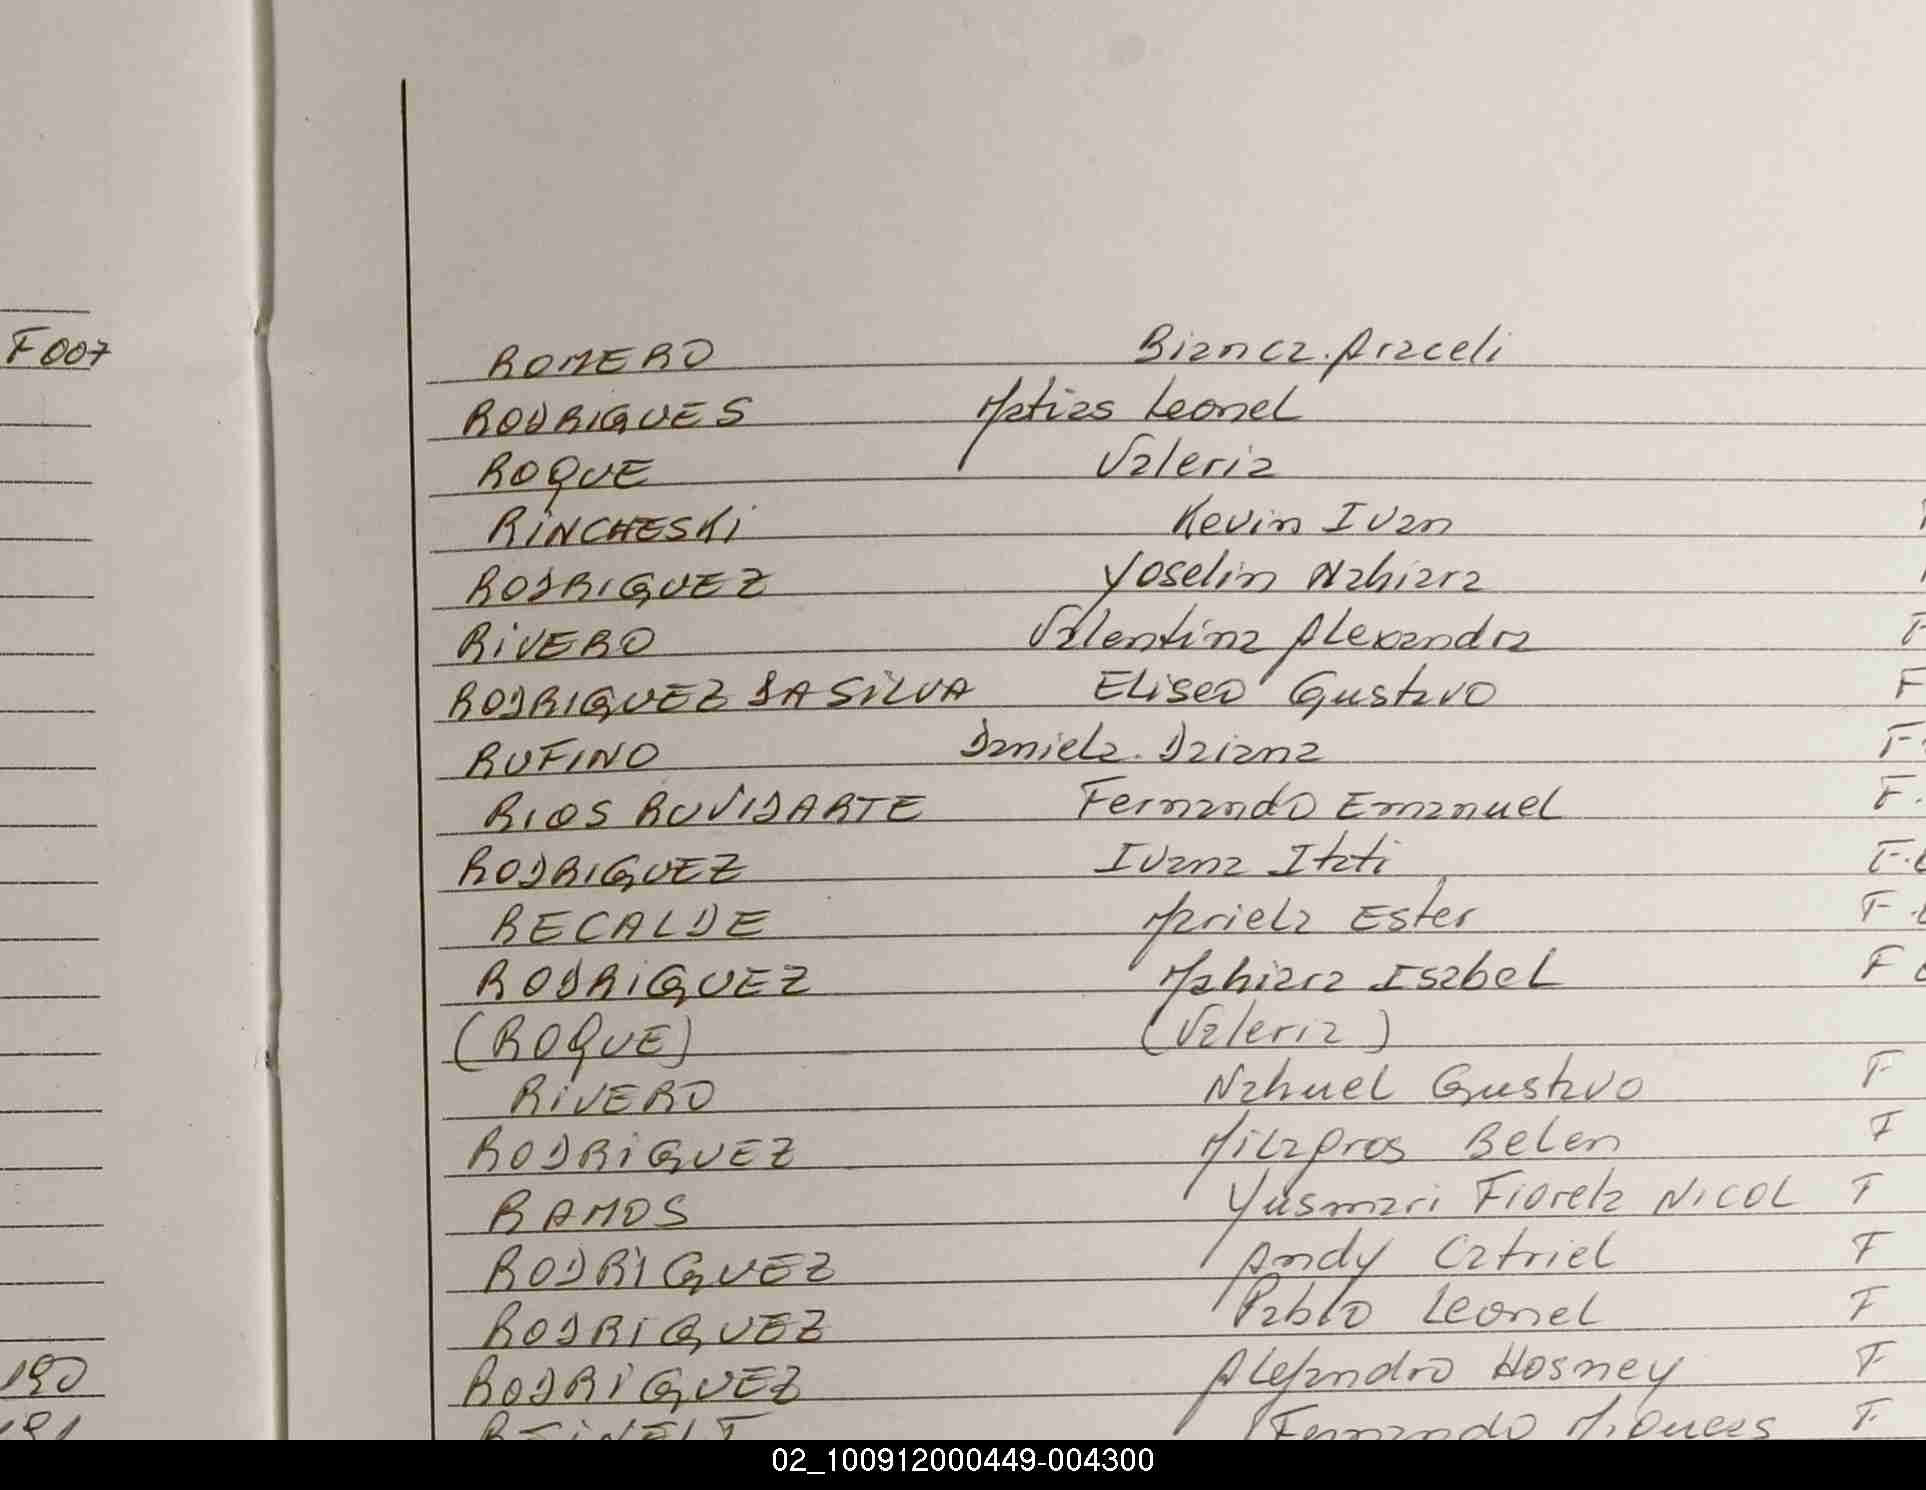 F007
ROMERO Bianca Araceli
RODRIGUES Matias Leonel
ROQUE Valeria
RINCHESKI Kevin Ivan
RODRIGUEZ Yoselin Nahiara
RIVERO Valentina Alexandra
RODRIGUEZ DA SILVA Eliseo Gustavo F
RUFINO Daniela Daiana F
RIOS RUVIDARTE Fernando Emanuel F.
RODRIGUEZ Ivana Itati F.
RECALDE Mariela Ester F.
RODRIGUEZ Mahiara Isabel F
(ROQUE) (Valeria)
RIVERO Nahuel Gustavo F
RODRIGUEZ Milagros Belen F
RAMOS Yusmari Fiorela NICOL F
RODRIGUEZ Andy Catriel F
RODRIGUEZ Pablo Leonel F
190 RODRIGUEZ Alejandro Hosney F
191 REINELT Fernando F
02_100912000449-004300